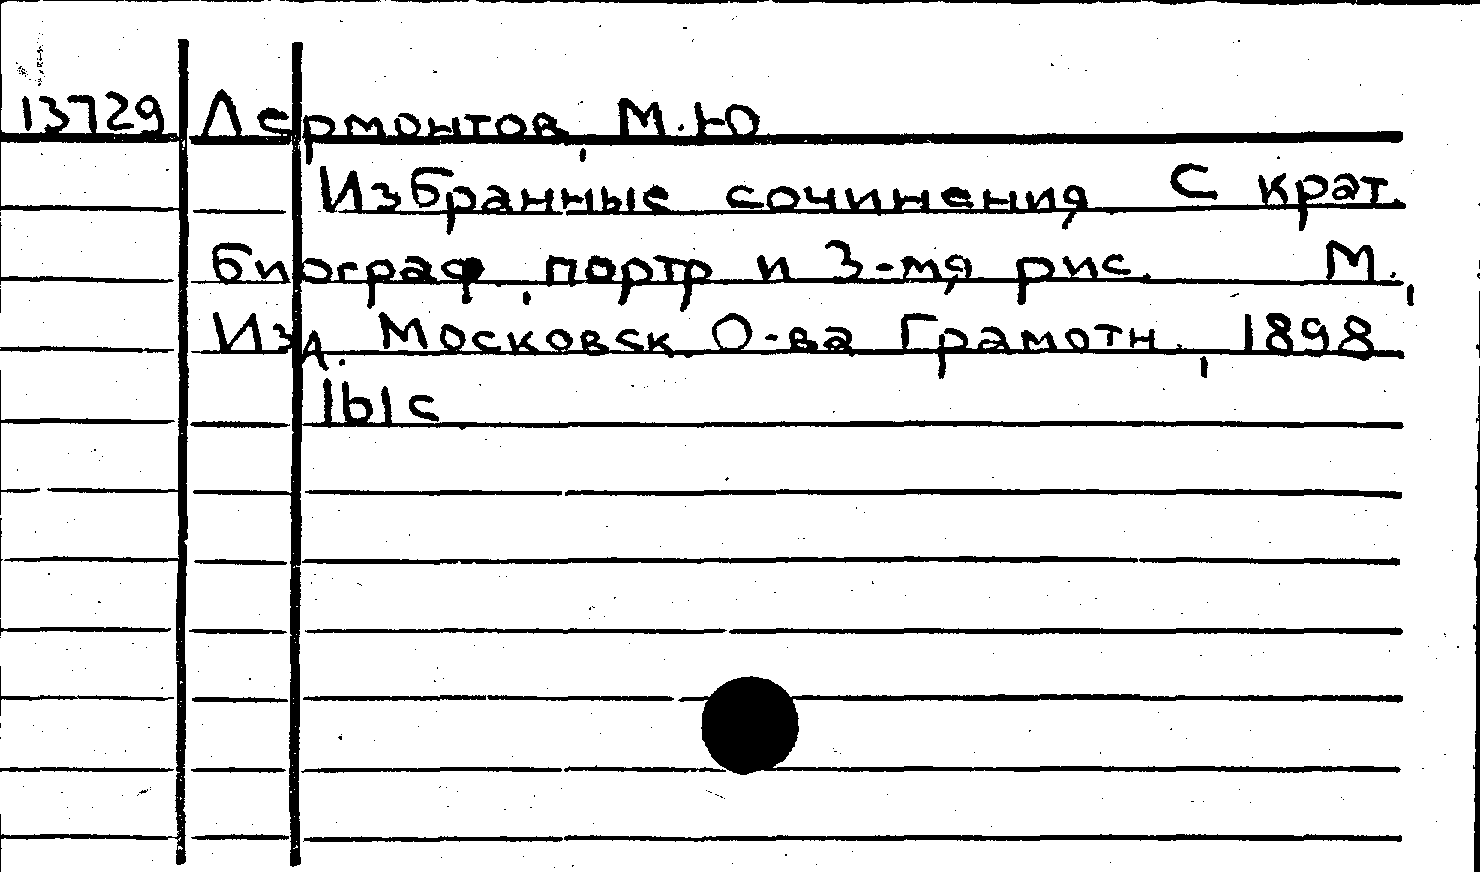 13729 Лермонтов, М.Ю
Избранные сочинения С крат.
биограф, портр и 3-мя рис. М.,
Изд. Московск. О-ва Грамотн., 1898
161с